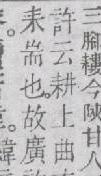 三腳耬今陝甘人
許云耕上曲
耒耑也。故廣